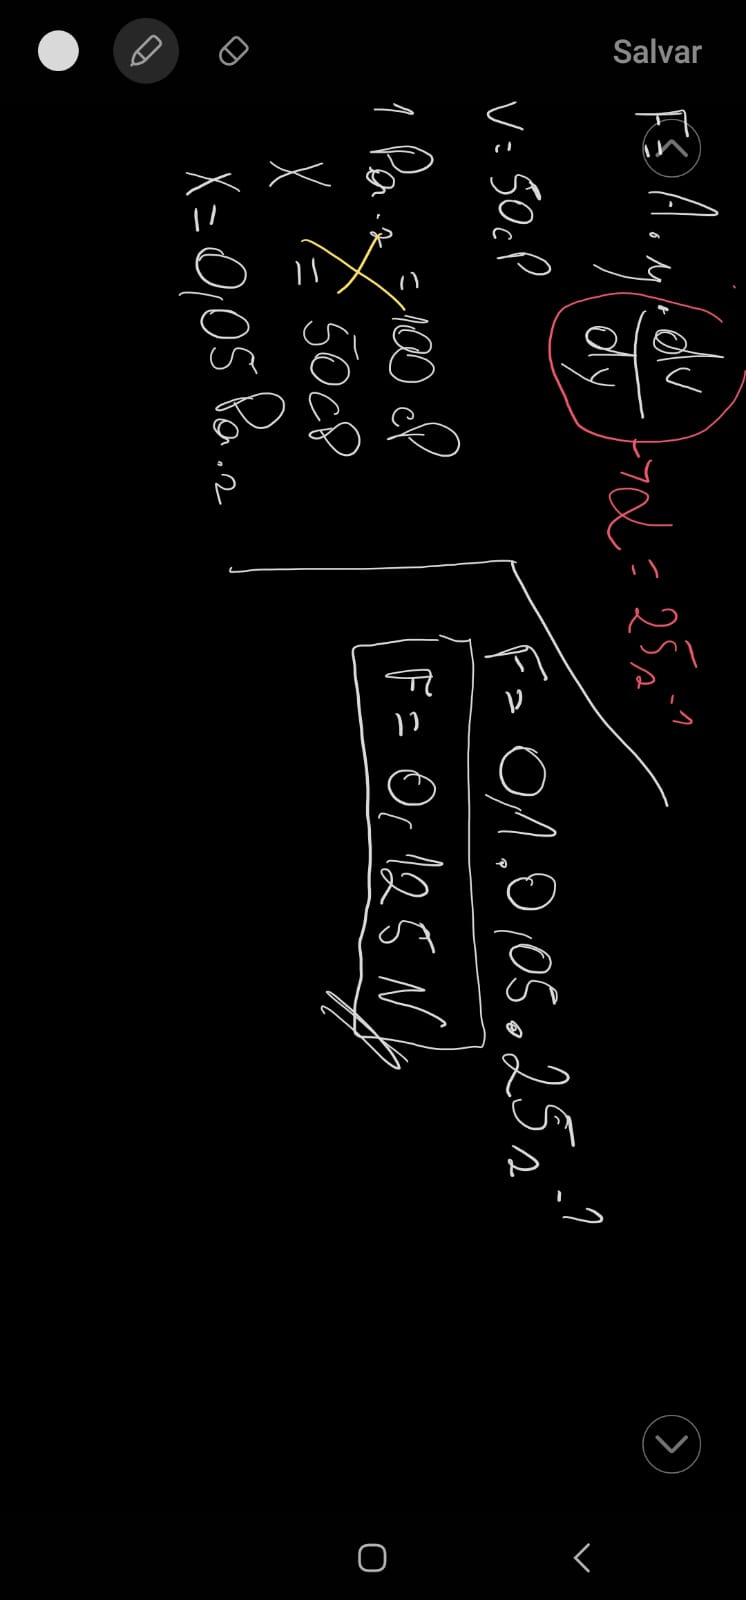 Salvar
F = A . μ . dv/dy → α = 25 s⁻¹
V = 50 cP
1 Pa.s = 100 cP
X = 50 cP
X = 0,05 Pa.s
F = 0,1 . 0,05 . 25 s⁻¹
F = 0,125 N